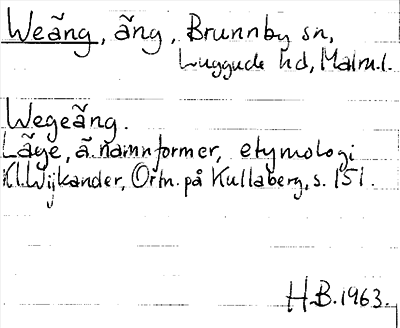 Weäng, äng, Brunnby sn,
Luggude hd, Malm.l.
Wegeäng.
Läge, ä. namnformer, etymologi
Kl. Wijkander, Ortn. på Kullaberg, s. 151.
H.B. 1963.